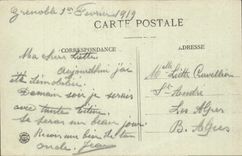 Grenoble 1er Fevrier 1919
CARTE POSTALE
CORRESPONDANCE
ADRESSE
Ma chere Lette
aujourd'hui j'ai
été démobilisé
Demain soir je serai
avec tante
Ce sera un beau jour
Recois un bien de ton
oncle Jean
Melle Lette Cavellier
St André
Les Alpes
B. Alpes